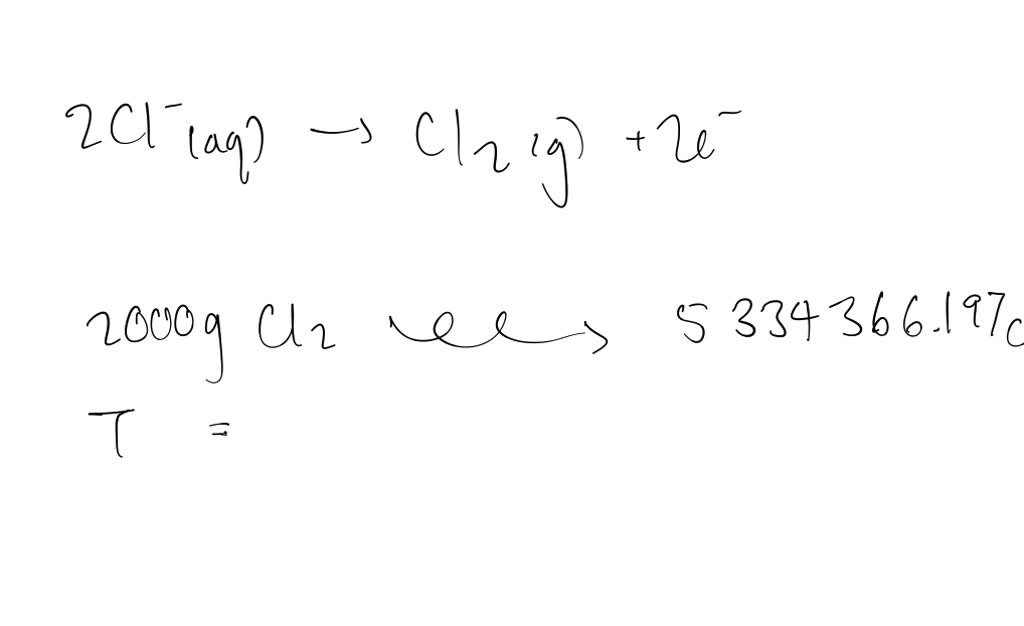 2Cl⁻(aq) → Cl₂(g) + 2e⁻
2000g Cl₂ → 5 334 366.197C
T =